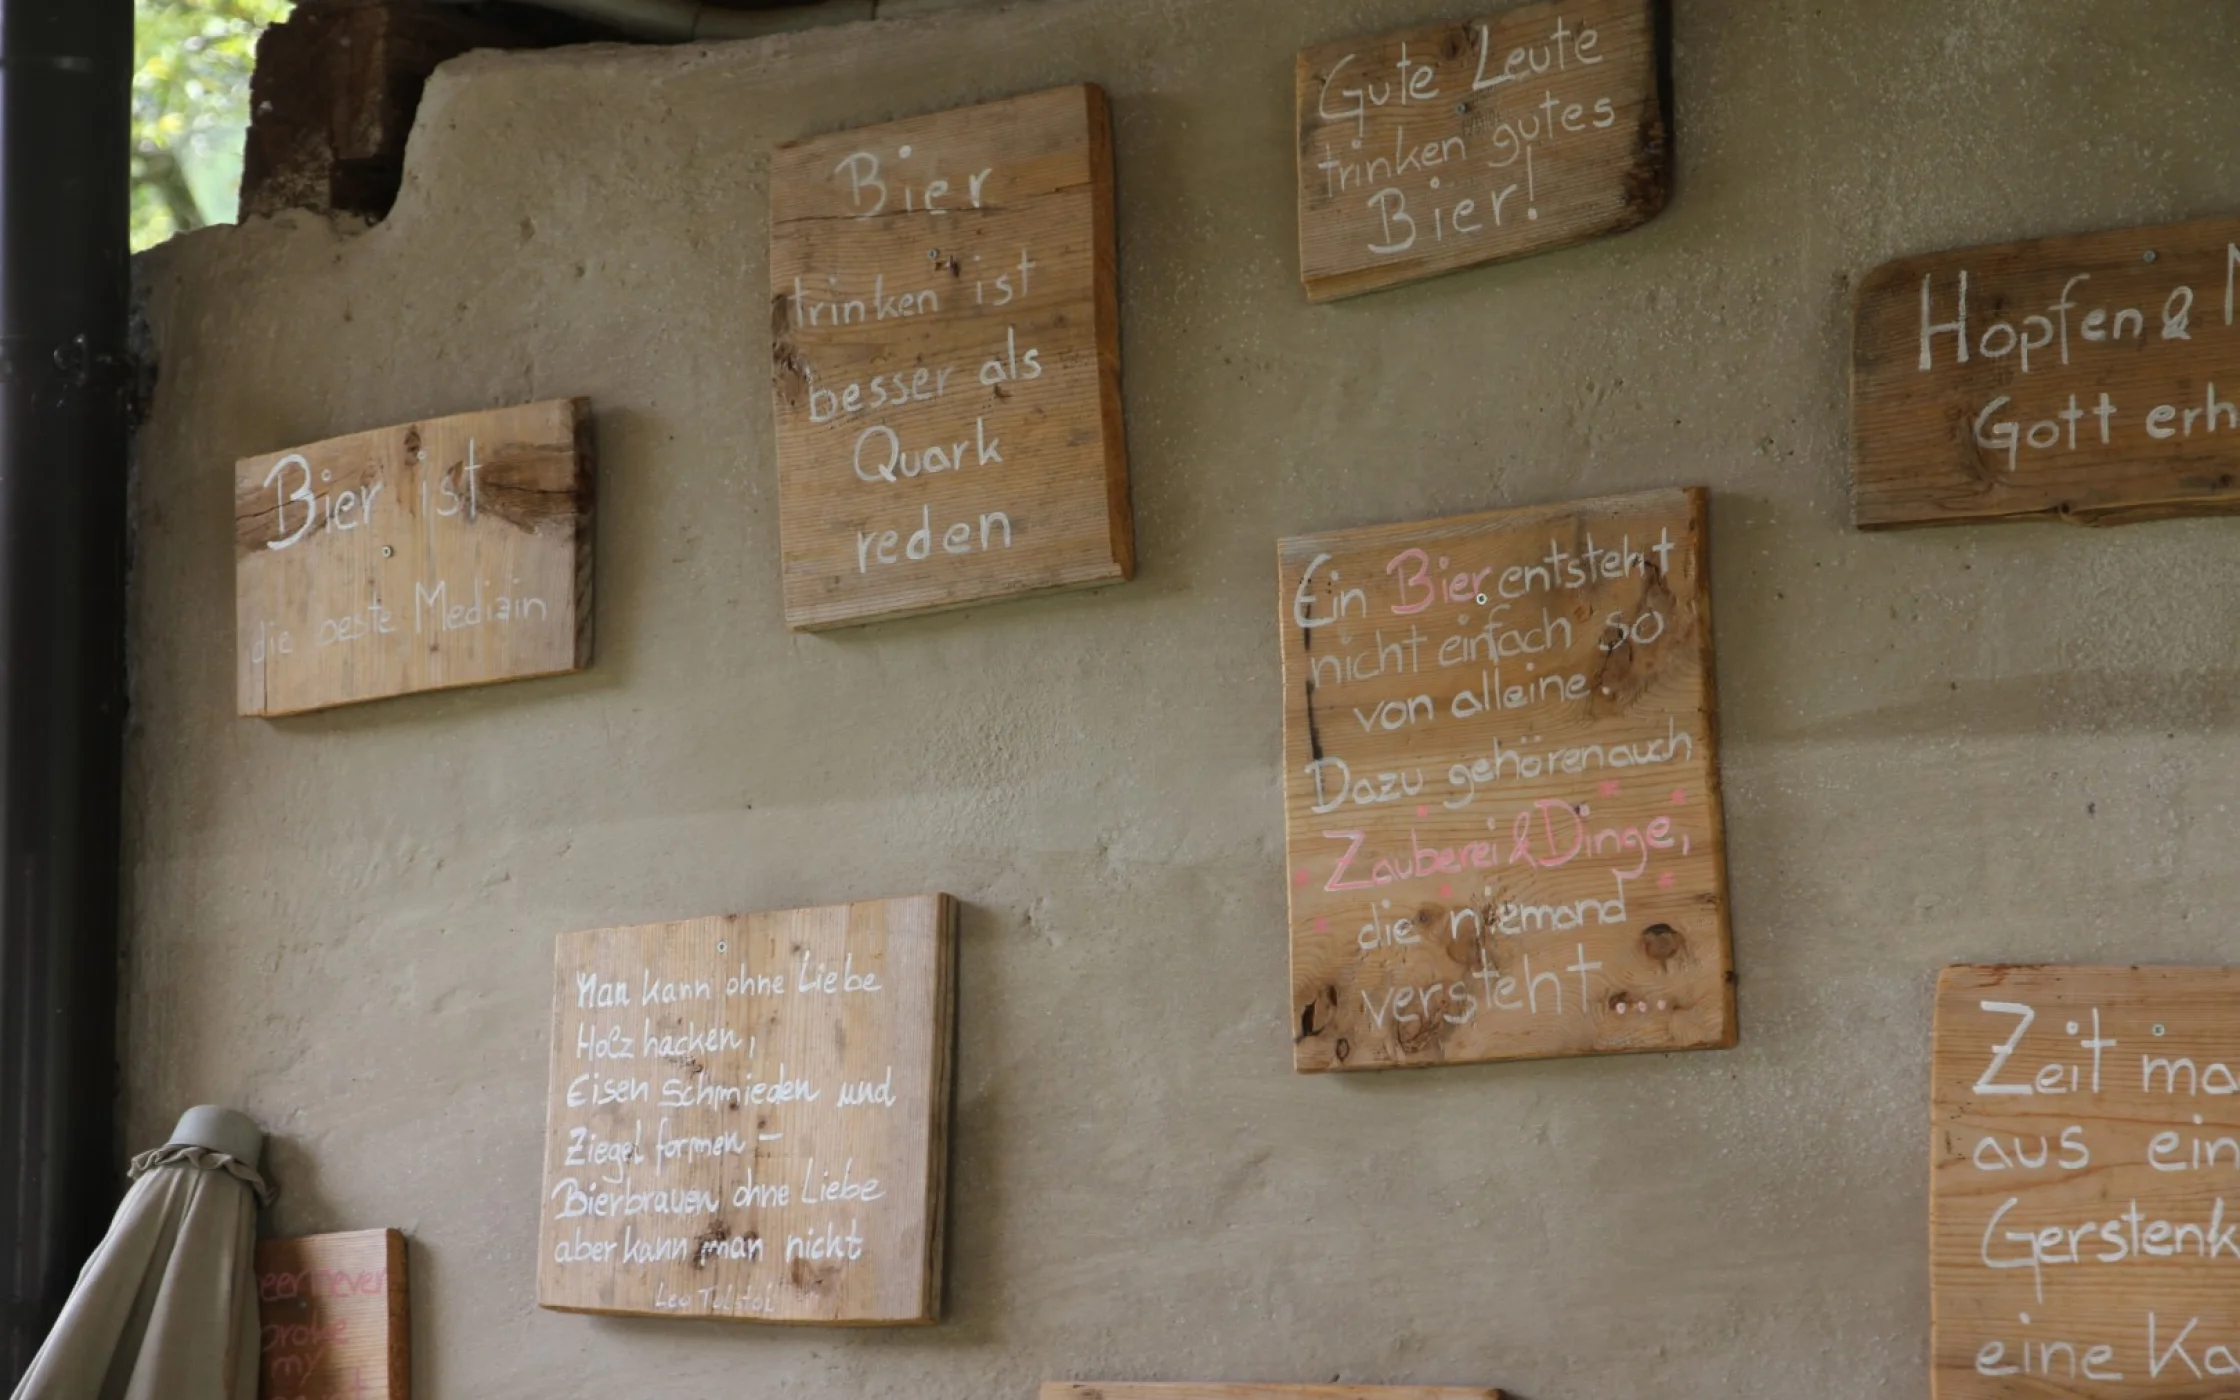 Gute Leute
trinken gutes
Bier!
Bier
trinken ist
besser als
Quark
reden
Hopfen &
Gott erh
Bier ist
die beste Medizin
Ein Bier entsteht
nicht einfach so
von alleine.
Dazu gehören auch
Zauberei & Dinge,
die niemand
versteht...
Man kann ohne Liebe
Holz hacken,
Eisen schmieden und
Ziegel formen -
Bierbrauen ohne Liebe
aber kann man nicht
Leo Tolstoi
Zeit ma
aus ein
Gerstenk
eine Ka
eer never
broke
my